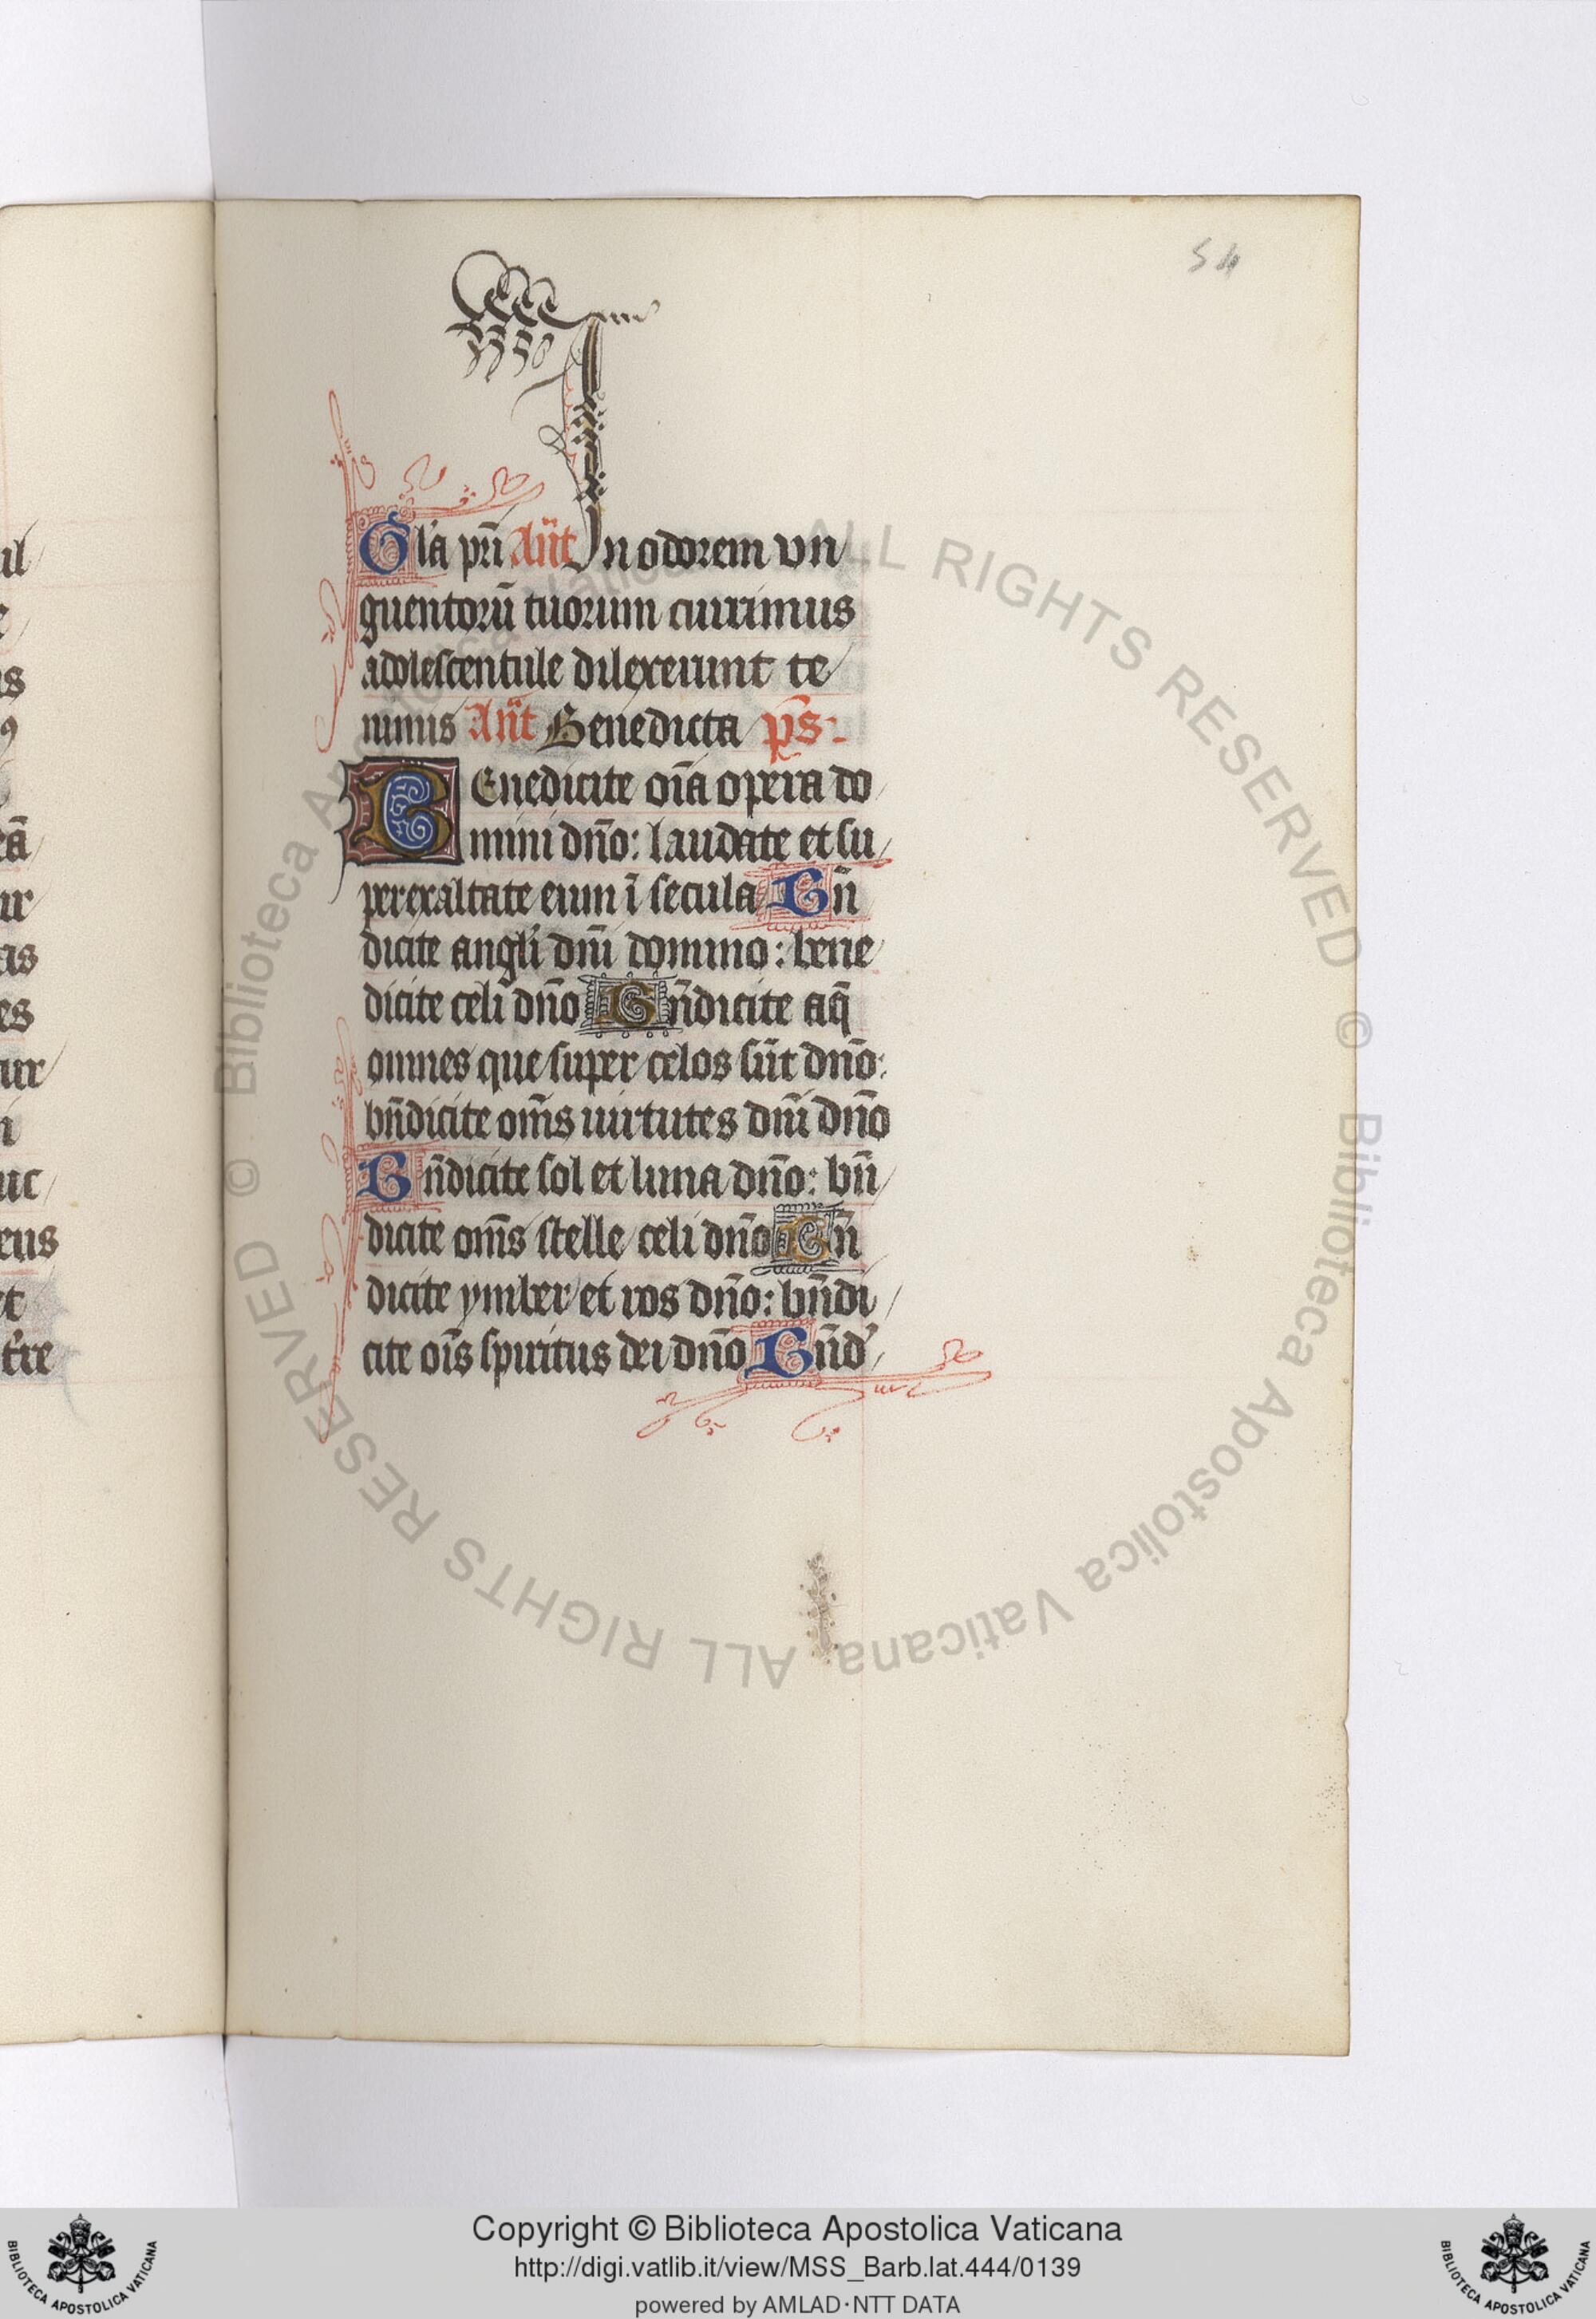 54
Gła pri Ant In odorem vn
guentorū tuorum currimus
adolescentule dilexerunt te
nimis Ant Benedicta ps
Benedicite oīa opera do
mini dn̄o: laudate et su
perexaltate eum ī secula Bn̄
dicite angli dn̄i domino: bene
dicite celi dn̄o Bn̄dicite aq̄
omnes que super celos sūt dn̄o:
bn̄dicite om̄s uirtutes dn̄i dn̄o
Bn̄dicite sol et luna dn̄o: bn̄
dicite om̄s stelle celi dn̄o Bn̄
dicite ymber et ros dn̄o: bn̄di
cite oīs spiritus dei dn̄o Bn̄d
ul
e
is
9
eā
ur
as
es
ur
i
uc
eus
et
tre
© Biblioteca Apostolica Vaticana ALL RIGHTS RESERVED © Biblioteca Apostolica Vaticana ALL RIGHTS RESERVED
Copyright © Biblioteca Apostolica Vaticana
http://digi.vatlib.it/view/MSS_Barb.lat.444/0139
powered by AMLAD·NTT DATA
BIBLIOTECA APOSTOLICA VATICANA
BIBLIOTECA APOSTOLICA VATICANA